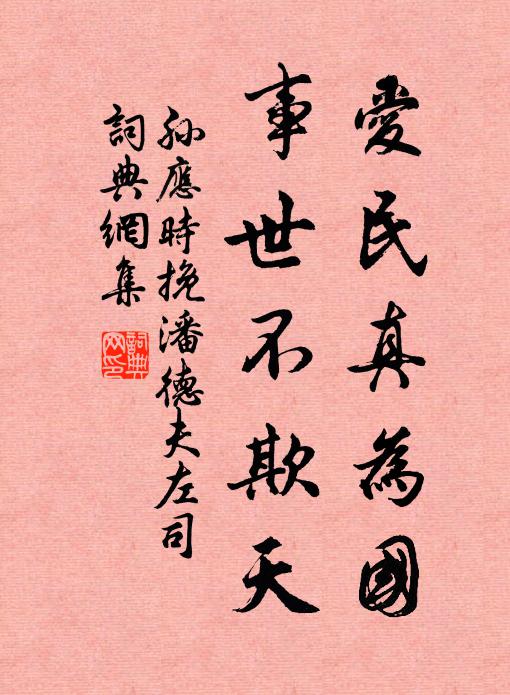 愛民真為國
事世不欺天
孫應時挽潘德夫左司
詞典網集
詞典網印